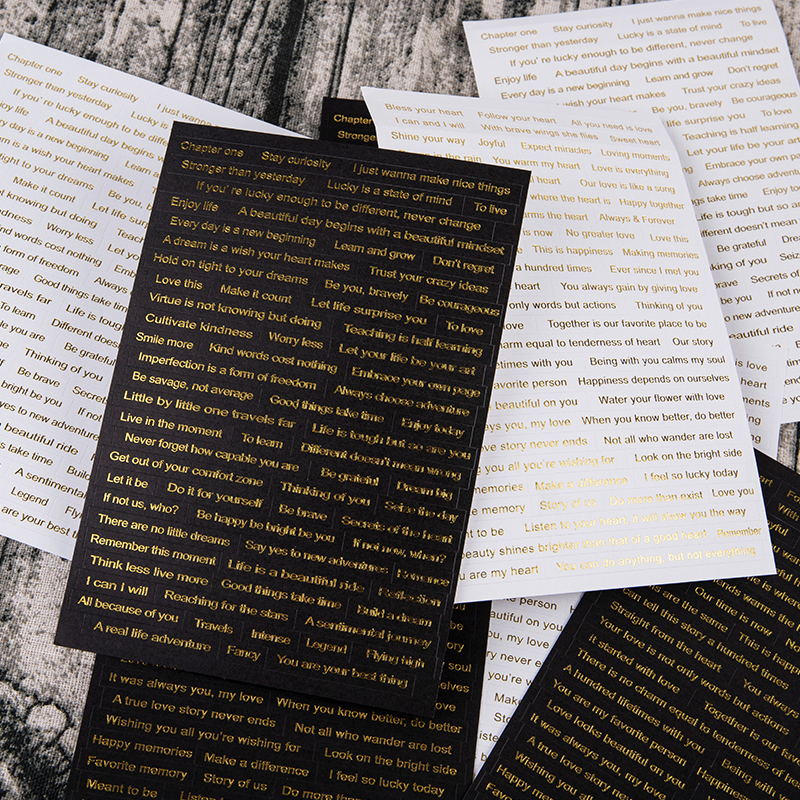 Chapter one Stay curiosity I just wanna make nice things
Stronger than yesterday Lucky is a state of mind To live
If you' re lucky enough to be different, never change
Enjoy life A beautiful day begins with a beautiful mindset
Every day is a new beginning Learn and grow Don't regret
A dream is a wish your heart makes Trust your crazy ideas
Hold on tight to your dreams Be you, bravely Be courageous
Love this Make it count Let life surprise you To love
Virtue is not knowing but doing Teaching is half learning
Cultivate kindness Worry less Let your life be your art
Smile more Kind words cost nothing Embrace your own page
Imperfection is a form of freedom Always choose adventure
Be savage, not average Good things take time Enjoy today
Little by little one travels far Life is tough but so are you
Live in the moment To learn Different doesn't mean wrong
Never forget how capable you are Be grateful Dream big
Get out of your comfort zone Thinking of you Seize the day
Let it be Do it for yourself Be brave Secrets of the heart
If not us, who? Be happy be bright be you If not now, when?
There are no little dreams Say yes to new adventures Romance
Remember this moment Life is a beautiful ride Reflection
Think less live more Good things take time Build a dream
I can I will Reaching for the stars A sentimental journey
All because of you Travels Intense Legend Flying high
A real life adventure Fancy You are your best thing
Bless your heart Follow your heart All you need is love
I can and I will With brave wings she flies Sweet heart
Shine your way Joyful Expect miracles Loving moments
is the rain You warm my heart Love is everything
heart Our love is like a song
where the heart is Happy together
warms the heart Always & Forever
is now No greater love Love this
This is happiness Making memories
a hundred times Ever since I met you
heart You always gain by giving love
only words but actions Thinking of you
love Together is our favorite place to be
charm equal to tenderness of heart Our story
lifetimes with you Being with you calms my soul
favorite person Happiness depends on ourselves
beautiful on you Water your flower with love
you, my love When you know better, do better
love story never ends Not all who wander are lost
you all you're wishing for Look on the bright side
memories Make a difference I feel so lucky today
memory Story of us Do more than exist Love you
to be Listen to your heart, it will show you the way
beauty shines brighter than that of a good heart Remember
you are my heart You can do anything, but not everything
Chapter one Stay curiosity I just wanna
Stronger than yesterday Lucky is
If you' re lucky enough to be
Enjoy life A beautiful day begins
Every day is a new beginning
A dream is a wish your heart makes
Hold on tight to your dreams Be you,
Make it count Let life
not knowing but doing
kindness Worry less Let
Kind words cost nothing
form of freedom Always
Good things take time
travels far Life is tough
To learn Different doesn't
you are Be grateful
Thinking of you
Be brave Secrets
bright be you If not
yes to new adventures
beautiful ride
take time Build
A sentimental
Legend Flying
are your best
Chapter one Stay curiosity I just wanna make nice things
Stronger than yesterday Lucky is a state of mind To live
If you' re lucky enough to be different, never change
Enjoy life A beautiful day begins with a beautiful mindset
Every day is a new beginning Learn and grow Don't regret
wish your heart makes Trust your crazy ideas
Be you, bravely Be courageous
life surprise you To love
Teaching is half learning
Let your life be your art
Embrace your own
Always choose adventure
time Enjoy
Life is tough but so are
Different doesn't mean
Be grateful Dream
of you Seize
Secrets of
If not now
beautiful ride
Chapter
Stronger
It was always you, my love When you know better, do better
A true love story never ends Not all who wander are lost
Wishing you all you're wishing for Look on the bright side
Happy memories Make a difference I feel so lucky today
Favorite memory Story of us Do more than
Meant to be Listen
warms the heart
Our time is now No
can tell this story a hundred times This is happiness
Straight from the heart
Your love is not only words but actions You always
It started with love
There is no charm equal to tenderness of heart Together is our
A hundred lifetimes with you
You are my favorite person Being with
Love looks beautiful on you Happiness
It was always you, my love Water
A true love story never
Wishing you all you're
Happy memories
Favorite